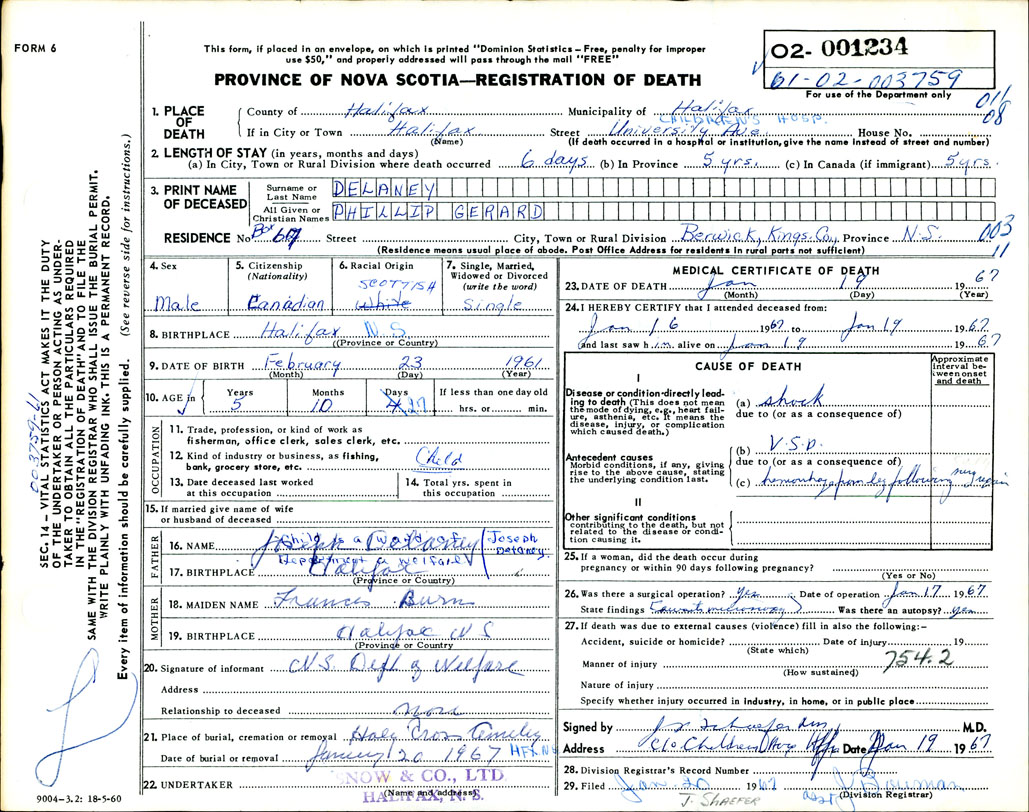 FORM 6
This form, if placed in an envelope, on which is printed "Dominion Statistics—Free, penalty for improper
use $50," and properly addressed will pass through the mail "FREE"
PROVINCE OF NOVA SCOTIA—REGISTRATION OF DEATH
02- 001234
61-02-003759
For use of the Department only
011
08
1. PLACE OF DEATH
County of Halifax Municipality of Halifax
CHILDREN'S HOSP.
If in City or Town Halifax Street University Ave. House No.
(Name) (If death occurred in a hospital or institution, give the name instead of street and number)
2. LENGTH OF STAY (in years, months and days)
(a) In City, Town or Rural Division where death occurred 6 days (b) In Province 5 yrs. (c) In Canada (if immigrant) 5 yrs.
3. PRINT NAME OF DECEASED
Surname or Last Name DELANEY
All Given or Christian Names PHILLIP GERARD
RESIDENCE No Box 617 Street City, Town or Rural Division Berwick, Kings. Co., Province N.S. 003
11
(Residence means usual place of abode. Post Office Address for residents in rural parts not sufficient)
4. Sex
Male
5. Citizenship
(Nationality)
Canadian
6. Racial Origin
SCOTTISH
White
7. Single, Married, Widowed or Divorced
(write the word)
Single
8. BIRTHPLACE Halifax N.S.
(Province or Country)
9. DATE OF BIRTH February 23 1961
(Month) (Day) (Year)
10. AGE in
Years 5
Months 10
Days 27
If less than one day old
hrs. or min.
OCCUPATION
11. Trade, profession, or kind of work as
fisherman, office clerk, sales clerk, etc.
12. Kind of industry or business, as fishing,
bank, grocery store, etc. Child
13. Date deceased last worked
at this occupation
14. Total yrs. spent in
this occupation
15. If married give name of wife
or husband of deceased
FATHER
16. NAME Joseph Delaney (Joseph Delaney)
Child is a ward of
Department of Welfare
17. BIRTHPLACE Halifax
(Province or Country)
MOTHER
18. MAIDEN NAME Frances Burn
19. BIRTHPLACE Halifax NS
(Province or Country
20. Signature of informant N.S. Dept of Welfare
Address
Relationship to deceased
21. Place of burial, cremation or removal Holy Cross Cemetery
Date of burial or removal January 20 1967 HFX NS
22. UNDERTAKER SNOW & CO., LTD.
(Name and address)
HALIFAX, N. S.
9004-3.2: 18-5-60
MEDICAL CERTIFICATE OF DEATH
23. DATE OF DEATH Jan 19 1967
(Month) (Day) (Year)
24. I HEREBY CERTIFY that I attended deceased from:
Jan 16 1967 to Jan 19 1967
and last saw him alive on Jan 19 1967
CAUSE OF DEATH
Approximate interval between onset and death
I
Disease or condition directly leading to death (This does not mean the mode of dying, e.g., heart failure, asthenia, etc. It means the disease, injury, or complication which caused death.)
(a) shock
due to (or as a consequence of)
Antecedent causes
Morbid conditions, if any, giving rise to the above cause, stating the underlying condition last.
(b) V.S.D.
due to (or as a consequence of)
(c) hemorrhage from leg following
II
Other significant conditions
contributing to the death, but not related to the disease or condition causing it.
25. If a woman, did the death occur during
pregnancy or within 90 days following pregnancy?
(Yes or No)
26. Was there a surgical operation? Yes Date of operation Jan 17 1967
State findings Was there an autopsy? yes
27. If death was due to external causes (violence) fill in also the following:—
Accident, suicide or homicide? Date of injury 19
(State which)
754.2
Manner of injury
(How sustained)
Nature of injury
Specify whether injury occurred in industry, in home, or in public place
Signed by M.D.
Address c/o Childrens Hosp Hfx Date Jan 19 1967
28. Division Registrar's Record Number
29. Filed Jan. 20 1967
(Division Registrar)
J. SHAEFER
SEC. 14 — VITAL STATISTICS ACT MAKES IT THE DUTY
OF THE UNDERTAKER OR PERSON ACTING AS UNDER-
TAKER TO OBTAIN ALL THE PARTICULARS REQUIRED
IN THE "REGISTRATION OF DEATH" AND TO FILE THE
SAME WITH THE DIVISION REGISTRAR WHO SHALL ISSUE THE BURIAL PERMIT.
WRITE PLAINLY WITH UNFADING INK. THIS IS A PERMANENT RECORD.
Every item of information should be carefully supplied. (See reverse side for instructions.)
003759-61